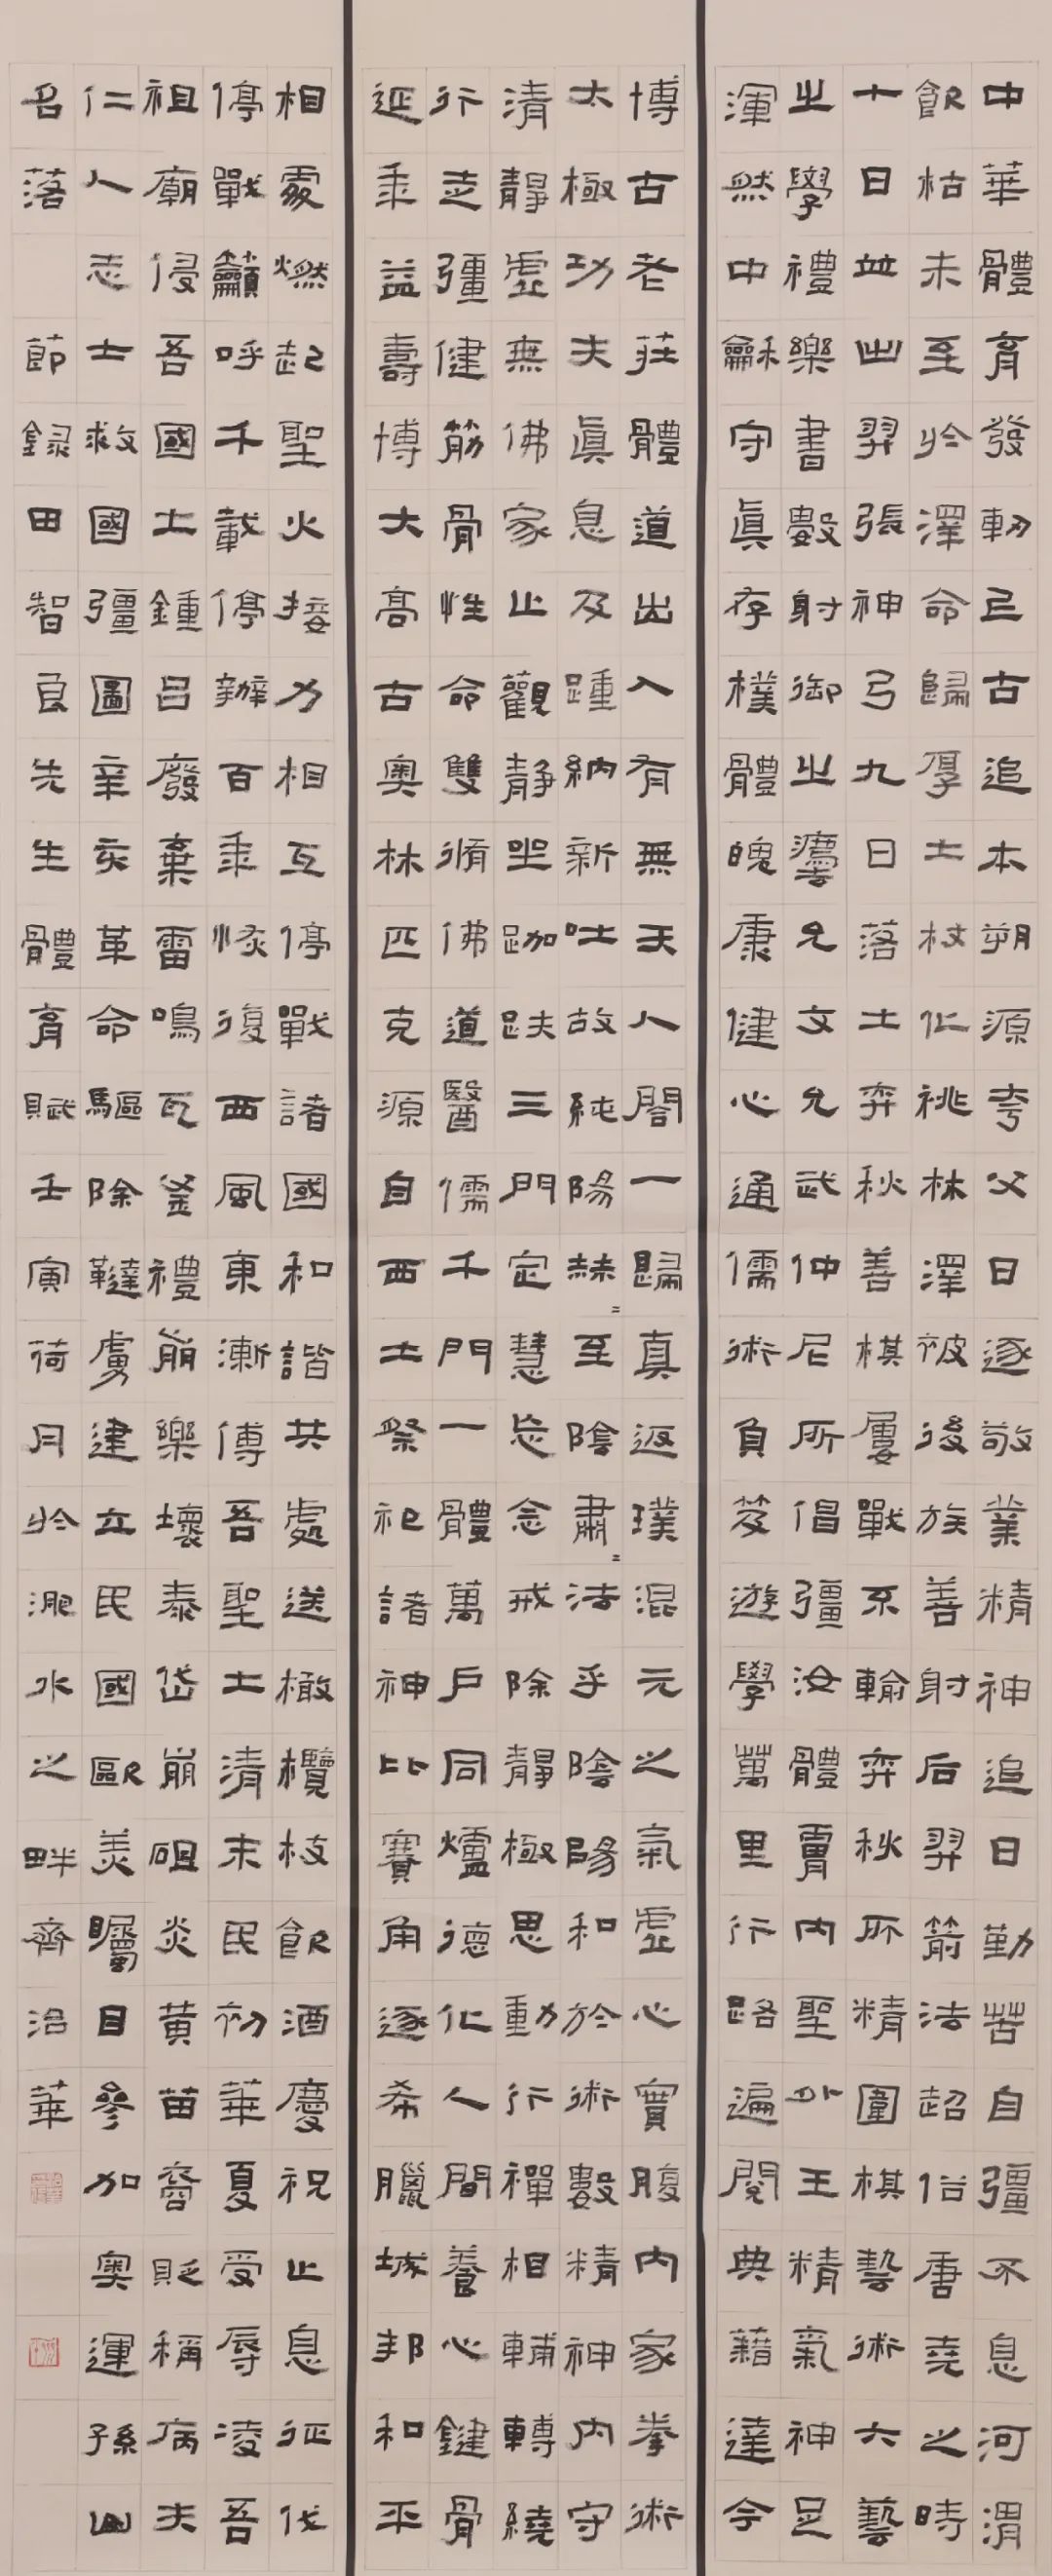 中華體育發軔亘古追本朔源夸父日逐敬業精神追日勤苦自彊不息河渭
飲枯未至於澤命歸厚土杖化祧林澤被後族善射后羿箭法超俗唐堯之時
十日並出羿張神弓九日落土弈秋善棋屢戰不輸弈秋所精圍棋藝術六藝
之學禮樂書數射御之允文允武仲尼所倡彊汝體膚內聖外王精氣神足
渾然中龢守眞存樸體魄康健心通儒術負笈遊學萬里行路遍閱典籍達今
博古老莊體道出入有無天人閤一歸真返璞混元之氣虛心實腹內家拳術
太極功夫眞息及踵納新吐故純陽赫=至陰肅=法乎陰陽和於術數精神內守
清靜虛無佛家止觀靜坐跏趺三門定慧忘念戒除靜極思動行禪相輔轉繞
行走彊健筋骨性命雙脩佛道醫儒千門一體萬戶同爐德化人間養心鍵骨
延年益壽博大高古奧林匹克源自西土祭祀諸神比賽角逐希臘城邦和平
相處燃起聖火接力相互停戰諸國和諧共處送橄欖枝飲酒慶祝止息征伐
停戰籲呼千載停辦百年恢復西風東漸傳吾聖土清末民初華夏受辱凌吾
祖廟侵吾國土鍾呂廢棄雷鳴瓦釜禮崩樂壞泰岱崩砠炎黃苗裔貶稱病夫
仁人志士救國彊圖辛亥革命驅除韃虜建立民國歐美矚目參加奧運孫山
名落 節録田智良先生體育賦壬寅荷月於淝水之畔齊治華